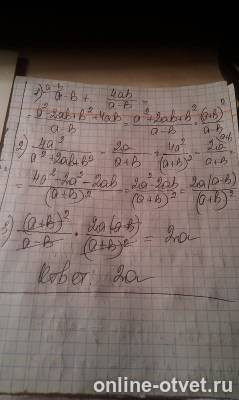 1) a-b/a-b + 4ab/a-b =
= a²-2ab+b²+4ab/a-b = a²+2ab+b²/a-b = (a+b)²/a-b
2) 4a²/a²+2ab+b² - 2a/a+b = 4a²/(a+b)² - 2a/a+b =
= 4a²-2a²-2ab/(a+b)² = 2a²-2ab/(a+b)² = 2a(a-b)/(a+b)²
3) (a+b)²/a-b · 2a(a-b)/(a+b)² = 2a
Ответ: 2a
online-otvet.ru